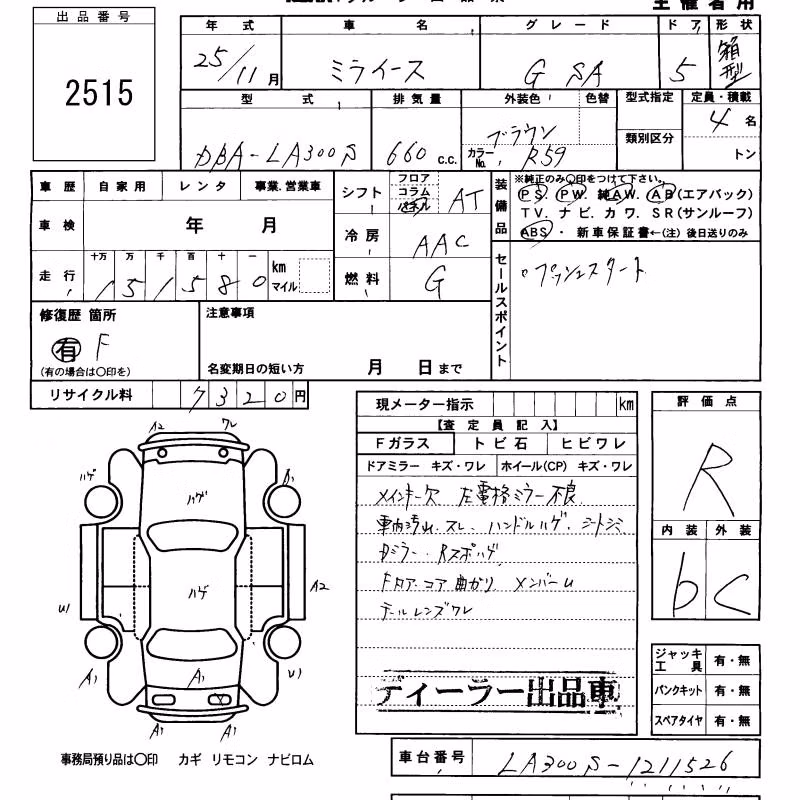 主催者用
出品番号
2515
年式 車名 グレード ドア 形状
25/11月 ミライース G SA 5 箱型
型式 排気量 外装色 色替 型式指定 定員・積載
DBA-LA300S 660 c.c. ブラウン カラーNo. R59 類別区分 4名
トン
車歴 自家用 レンタ 事業.営業車
車検 年 月
走行 十万 万 千 百 十 一
151580 km マイル
シフト フロア コラム パネル AT
冷房 AAC
燃料 G
装備品
※純正のみ〇印をつけて下さい。
PS. PW. 純AW. AB(エアバック)
TV. ナビ. カワ. SR(サンルーフ)
ABS ・ 新車保証書←(注) 後日送りのみ
セールスポイント
。プッシュスタート
修復歴 箇所
有 F
(有の場合は〇印を)
注意事項
名変期日の短い方 月 日まで
リサイクル料 7320円
現メーター指示 km
【査定員記入】
Fガラス トビ石 ヒビワレ
ドアミラー キズ・ワレ ホイール(CP) キズ・ワレ
メインキー欠 左電格ミラー不良
車内汚れ. スレ. ハンドルハゲ. シートシミ
Dミラー. Rスポハゲ
コア曲がり メンバーU
テールレンズワレ
ディーラー出品車
評価点
R
内装 外装
b C
ジャッキ工具 有・無
パンクキット 有・無
スペアタイヤ 有・無
A2 ワレ
ハゲ ハゲ A1
ハゲ
U1 A2
A1 A1 U1
A1 A1
事務局預り品は〇印 カギ リモコン ナビロム
車台番号 LA300S-1211526